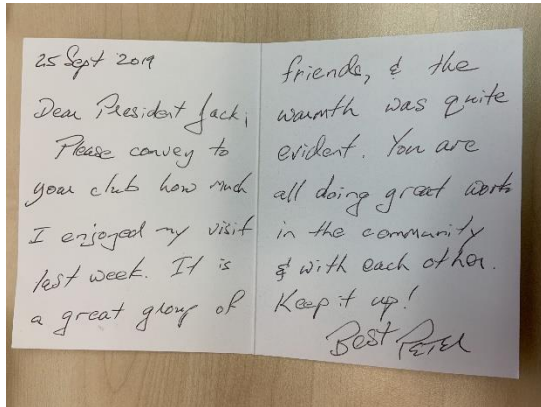 25 Sept 2019
Dear President Jack,
Please convey to
your club how much
I enjoyed my visit
last week. It is
a great group of
friends, & the
warmth was quite
evident. You are
all doing great work
in the community
& with each other.
Keep it up!
Best Peter